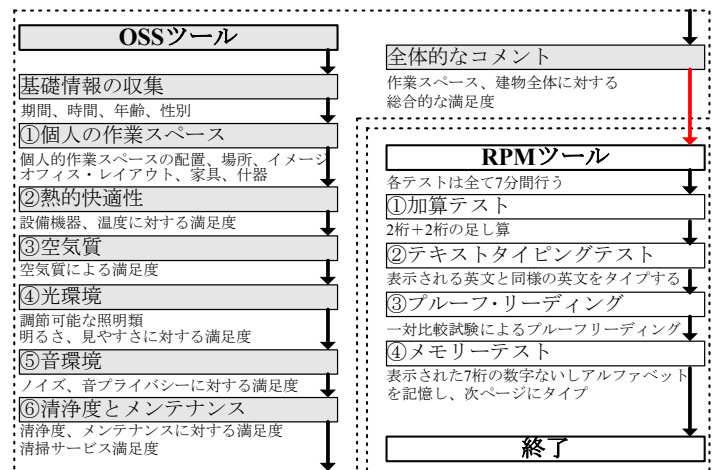 OSSツール
基礎情報の収集
期間、時間、年齢、性別
①個人の作業スペース
個人的作業スペースの配置、場所、イメージ
オフィス・レイアウト、家具、什器
②熱的快適性
設備機器、温度に対する満足度
③空気質
空気質による満足度
④光環境
調節可能な照明類
明るさ、見やすさに対する満足度
⑤音環境
ノイズ、音プライバシーに対する満足度
⑥清浄度とメンテナンス
清浄度、メンテナンスに対する満足度
清掃サービス満足度
全体的なコメント
作業スペース、建物全体に対する
総合的な満足度
RPMツール
各テストは全て7分間行う
①加算テスト
2桁＋2桁の足し算
②テキストタイピングテスト
表示される英文と同様の英文をタイプする
③プルーフ・リーディング
一対比較試験によるプルーフリーディング
④メモリーテスト
表示された7桁の数字ないしアルファベット
を記憶し、次ページにタイプ
終了